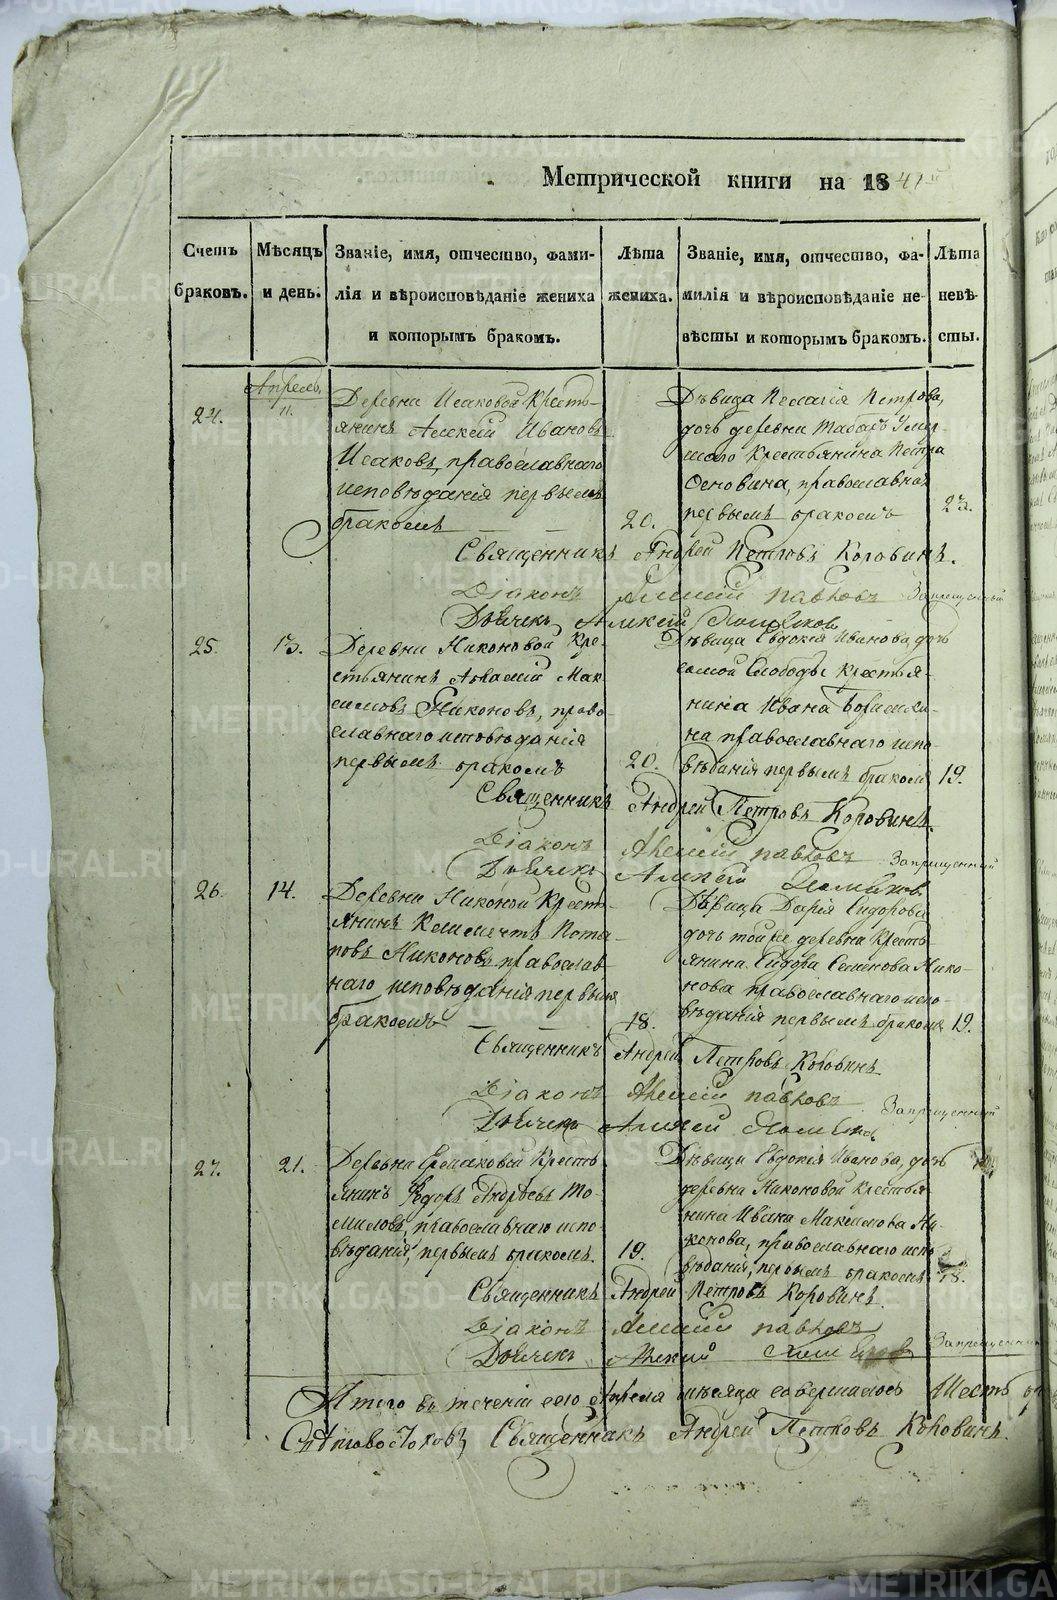 Метрической книги на 1841й
Счетъ браковъ.
Мѣсяцъ и день.
Званіе, имя, отчество, фами-
лія и вѣроисповѣданіе жениха
и которымъ бракомъ.
Лѣта
жениха.
Званіе, имя, отчество, фа-
милія и вѣроисповѣданіе не-
вѣсты и которымъ бракомъ.
Лѣта
невѣ-
сты.
24.
Апрель
11.
Деревни Исаковой Кресть-
янинъ Алексѣй Ивановъ
Исаковъ, православнаго
исповѣданія первымъ
бракомъ
20.
Дѣвица Пелагія Петрова,
дочь деревни Табаръ умер-
шаго Крестьянина Петра
Осковина, православнаго
первымъ бракомъ
23.
Священникъ Андрей Петровъ Коровинъ.
Діаконъ Павловъ Запрещенный
Дьячекъ Алексѣй
25.
13.
Деревни Никоновой Кре-
стьянинъ Мак-
симовъ Никоновъ, право-
славнаго исповѣданія
первымъ бракомъ
20.
Дѣвица Евдокія Иванова, дочь
самой Слободы Крестья-
нина Ивана
на православнаго испо-
вѣданія первымъ бракомъ
19.
Священникъ Андрей Петровъ Коровинъ.
Діаконъ Павловъ Запрещенный
Дьячекъ Алексѣй
26.
14.
Деревни Никоной Кресть-
янинъ Пота-
повъ Никоновъ, православ-
наго исповѣданія первымъ
бракомъ
18.
Дѣвица Дарія Сидорова
дочь той же деревни Кресть-
янина Сидора Семенова Нико-
нова православнаго испо-
вѣданія первымъ бракомъ
19.
Священникъ Андрей Петровъ Коровинъ
Діаконъ Павловъ Запрещенный
Дьячекъ Алексѣй
27.
21.
Деревни Ермаковой Кресть-
янинъ Федоръ Андреевъ То-
миловъ, православнаго испо-
вѣданія, первымъ бракомъ.
19.
Дѣвица Евдокія Иванова, дочь
деревни Никоновой Крестья-
нина Ивана Максимова Ни-
конова, православнаго испо-
вѣданія, первымъ бракомъ
18.
Священникъ Андрей Петровъ Коровинъ.
Діаконъ Павловъ Запрещенный
Дьячекъ Алексѣй
Итого въ теченіи сего Апреля мѣсяца совершилось Шесть
Священникъ Андрей Петровъ Коровинъ.
METRIKI.GASO-URAL.RU